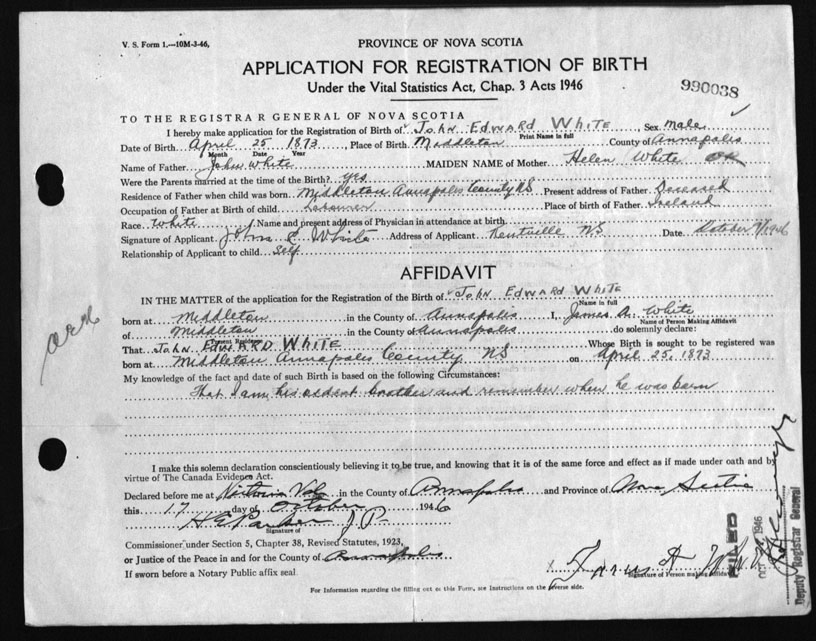 V. S. Form 1.—10M-3-46,
PROVINCE OF NOVA SCOTIA
APPLICATION FOR REGISTRATION OF BIRTH
Under the Vital Statistics Act, Chap. 3 Acts 1946
990038
TO THE REGISTRAR GENERAL OF NOVA SCOTIA
I hereby make application for the Registration of Birth of John Edward White, Sex Male
Print Name in full
Date of Birth April 25 1873, Place of Birth Middleton County of Annapolis
Month Date Year
Name of Father John White MAIDEN NAME of Mother Helen White OK
Were the Parents married at the time of the Birth? yes
Residence of Father when child was born Middleton Annapolis County NS Present address of Father Deceased
Occupation of Father at Birth of child Labourer Place of birth of Father Ireland
Race White Name and present address of Physician in attendance at birth
Signature of Applicant John E White Address of Applicant Kentville NS Date October 1946
Relationship of Applicant to child self
AFFIDAVIT
IN THE MATTER of the application for the Registration of the Birth of John Edward White
Name in full
born at Middleton in the County of Annapolis I, James A. White
Name of Person Making Affidavit
of Middleton in the County of Annapolis do solemnly declare:
Present Residence
That John Edward White Whose Birth is sought to be registered was
born at Middleton Annapolis County NS on April 25, 1873
My knowledge of the fact and date of such Birth is based on the following Circumstances:
That I am his oldest brother and remember when he was born
I make this solemn declaration conscientiously believing it to be true, and knowing that it is of the same force and effect as if made under oath and by
virtue of The Canada Evidence Act.
Declared before me at in the County of Annapolis and Province of Nova Scotia
this 17 day of October 1946
H E Parker J P
Signature of
Commissioner under Section 5, Chapter 38, Revised Statutes, 1923,
or Justice of the Peace in and for the County of Annapolis
If sworn before a Notary Public affix seal.
x James A White
Signature of Person making Affidavit
For Information regarding the filling out of this Form, see Instructions on the reverse side.
FILED
OCT 1946
Deputy Registrar General